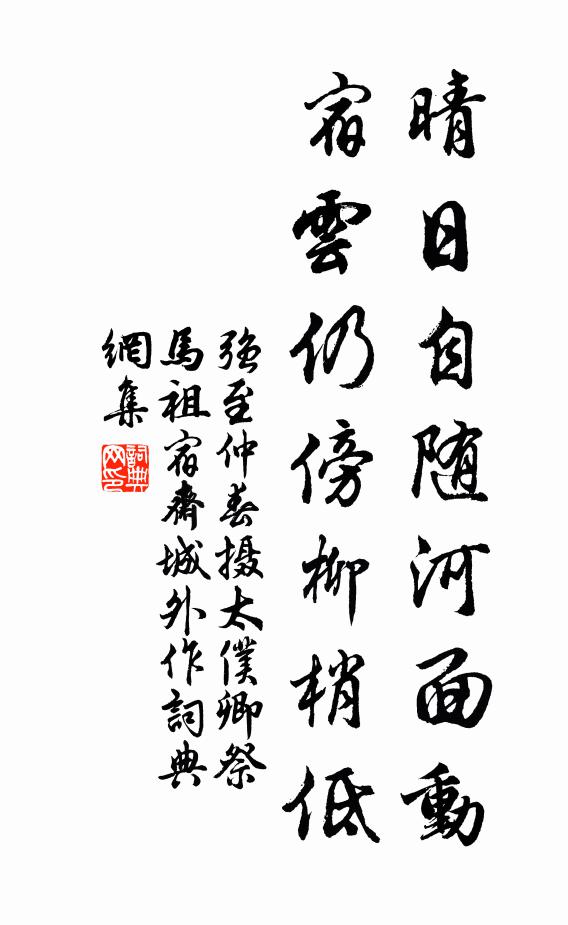 晴日自随河面動
宿雲仍傍柳梢低
強至仲春摄太僕卿祭
馬祖宿齋城外作詞典
網集
詞典
网印